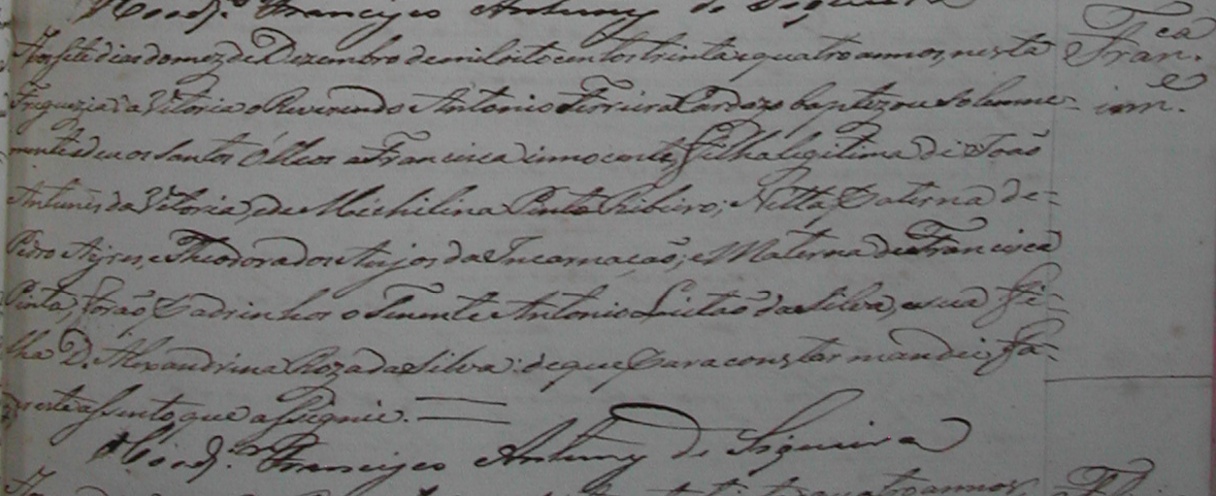 O Coadj.r Francisco Antunes de Siqueira
Aos sete dias do mez de Dezembro de mil oito centos trinta e quatro annos, nesta
Freguezia da Vitoria o Reverendo Antonio Ferreira Cardozo baptizou Solemne-
mente, e deu os Santos Óleos a Francisca innocente, Filha legitima de João
Antunes da Vitoria, e de Michilina Pinta Ribeiro; Netta Paterna de=
Pedro Ayres, e Theodora dos Anjos da Incarnação; e Materna de Francisca
Pinta, forão Padrinhos o Tenente Antonio Leitão da Silva, e sua fi=
lha D. Alexandrina Roza da Silva: de que para constar mandei fa=
este assento, que assignei.
O Coadj.r Francisco Antunes de Siqueira
Fran.ca
inn.e
quatro annos